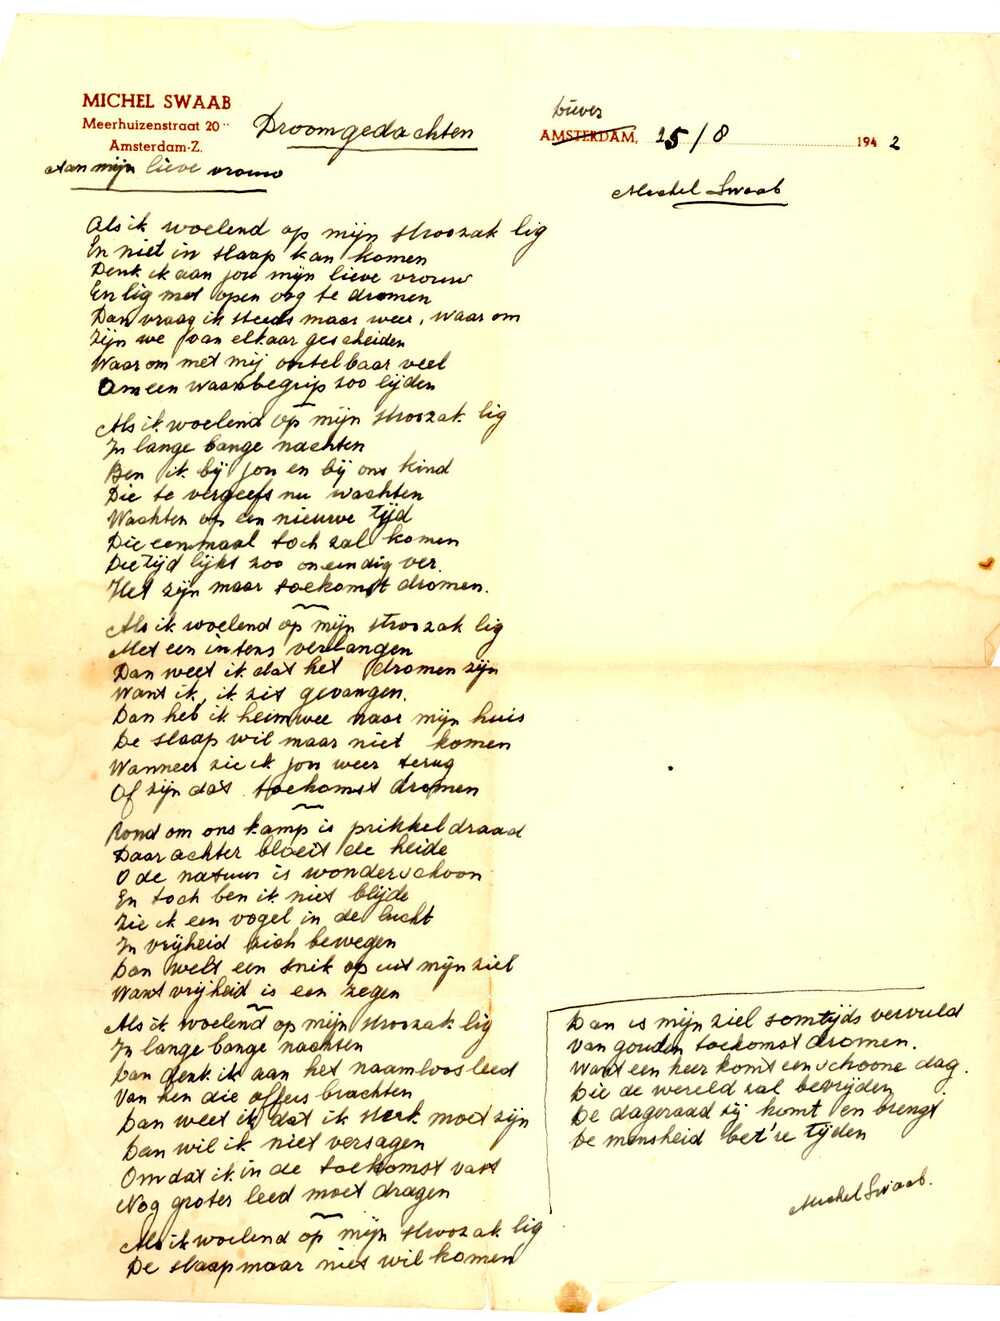 MICHEL SWAAB
Meerhuizenstraat 20"
Amsterdam-Z.
Droomgedachten
Diever
AMSTERDAM, 25/8 1942
Aan mijn lieve vrouw
Michel Swaab
Als ik woelend op mijn stroozak lig
En niet in slaap kan komen
Denk ik aan jou mijn lieve vrouw
En lig met open oog te dromen
Dan vraag ik steeds maar weer, waarom
Zijn we van elkaar gescheiden
Waarom met mij ontelbaar veel
Om een waanbegrip zoo lijden
Als ik woelend op mijn stroozak lig
In lange bange nachten
Ben ik bij jou en bij ons kind
Die te vergeefs nu wachten
Wachten op een nieuwe tijd
Die eenmaal toch zal komen
Die tijd lijkt zoo oneindig ver.
Het zijn maar toekomst dromen.
Als ik woelend op mijn stroozak lig
Met een intens verlangen
Dan weet ik dat het dromen zijn
Want ik, ik zit gevangen.
Dan heb ik heimwee naar mijn huis
De slaap wil maar niet komen
Wanneer zie ik jou weer terug
Of zijn dat toekomst dromen
Rond om ons kamp is prikkeldraad
Daar achter bloeit de heide
O de natuur is wonderschoon
En toch ben ik niet blijde
Zie ik een vogel in de lucht
In vrijheid zich bewegen
Dan welt een snik op uit mijn ziel
Want vrijheid is een zegen
Als ik woelend op mijn stroozak lig
In lange bange nachten
Dan denk ik aan het naamloos leed
Van hen die offers brachten
Dan weet ik dat ik sterk moet zijn
Dan wil ik niet versagen
Omdat ik in de toekomst vast
Nog groter leed moet dragen
Als ik woelend op mijn stroozak lig
De slaap maar niet wil komen
Dan is mijn ziel somtijds vervuld
van gouden toekomst dromen.
Want een keer komt een schoone dag.
Die de wereld zal bevrijden
De dageraad zij komt en brengt
De mensheid bet're tijden
Michel Swaab.